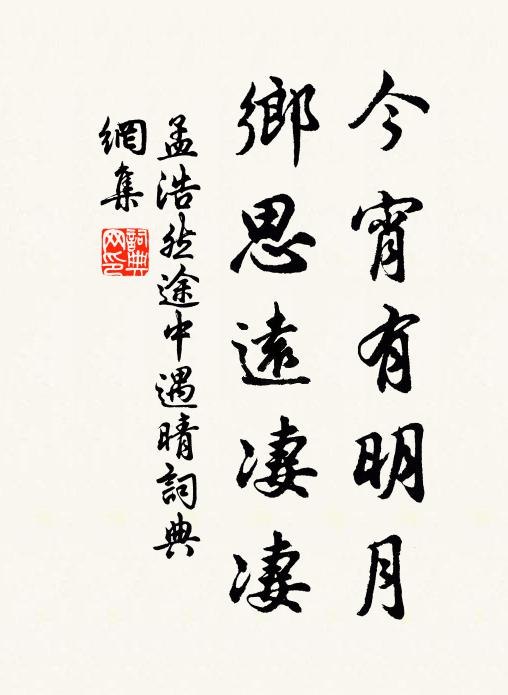 今宵有明月
鄉思遠淒淒
孟浩然途中遇晴詞典
網集
詞典网印